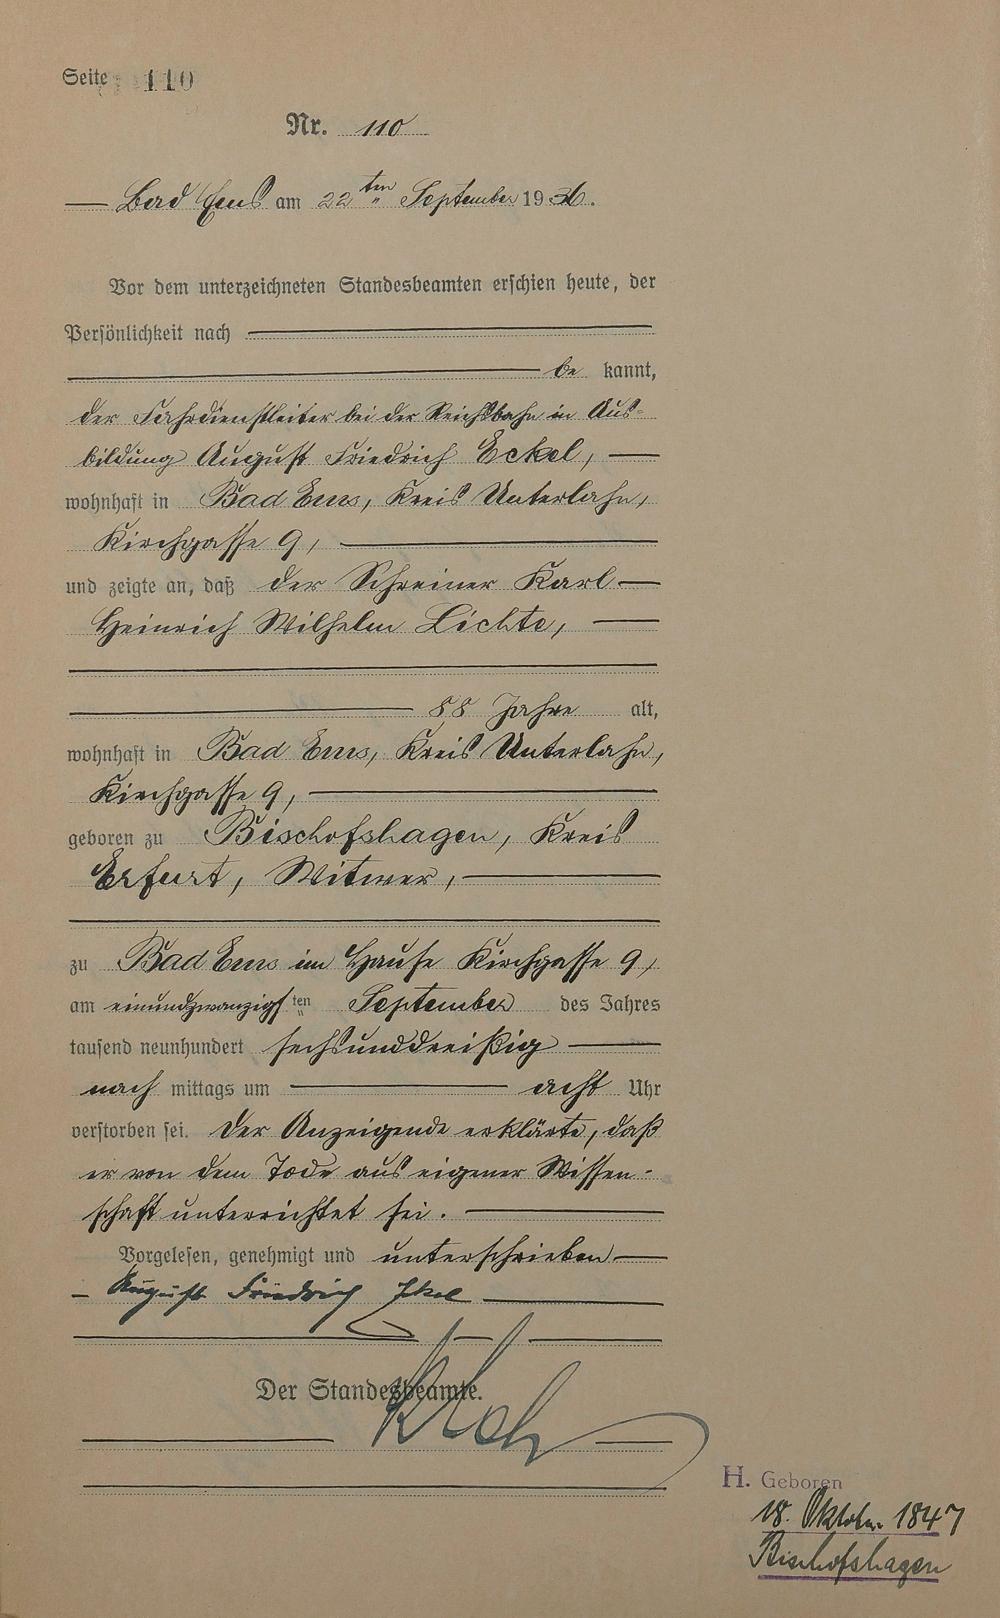 Seite 110
Nr. 110
Bad Ems am 22ten September 1936.
Vor dem unterzeichneten Standesbeamten erschien heute, der
Persönlichkeit nach
be kannt,
der Fahrdienstleiter bei der Reichsbahn in Aus-
bildung August Friedrich Eckel,
wohnhaft in Bad Ems, Kreis Unterlahn,
Kirchgasse 9,
und zeigte an, daß der Schreiner Karl
Heinrich Wilhelm Lichte,
88 Jahre alt,
wohnhaft in Bad Ems, Kreis Unterlahn,
Kirchgasse 9,
geboren zu Bischofshagen, Kreis
Erfurt, Witwer,
zu Bad Ems im Hause Kirchgasse 9,
am einundzwanzigsten September des Jahres
tausend neunhundert sechsunddreißig
nach mittags um acht Uhr
verstorben sei. Der Anzeigende erklärte, daß
er von dem Tode aus eigener Wissen-
schaft unterrichtet sei.
Vorgelesen, genehmigt und unterschrieben
August Friedrich
Der Standesbeamte.
H. Geboren
18. Oktober 1847
Bischofshagen